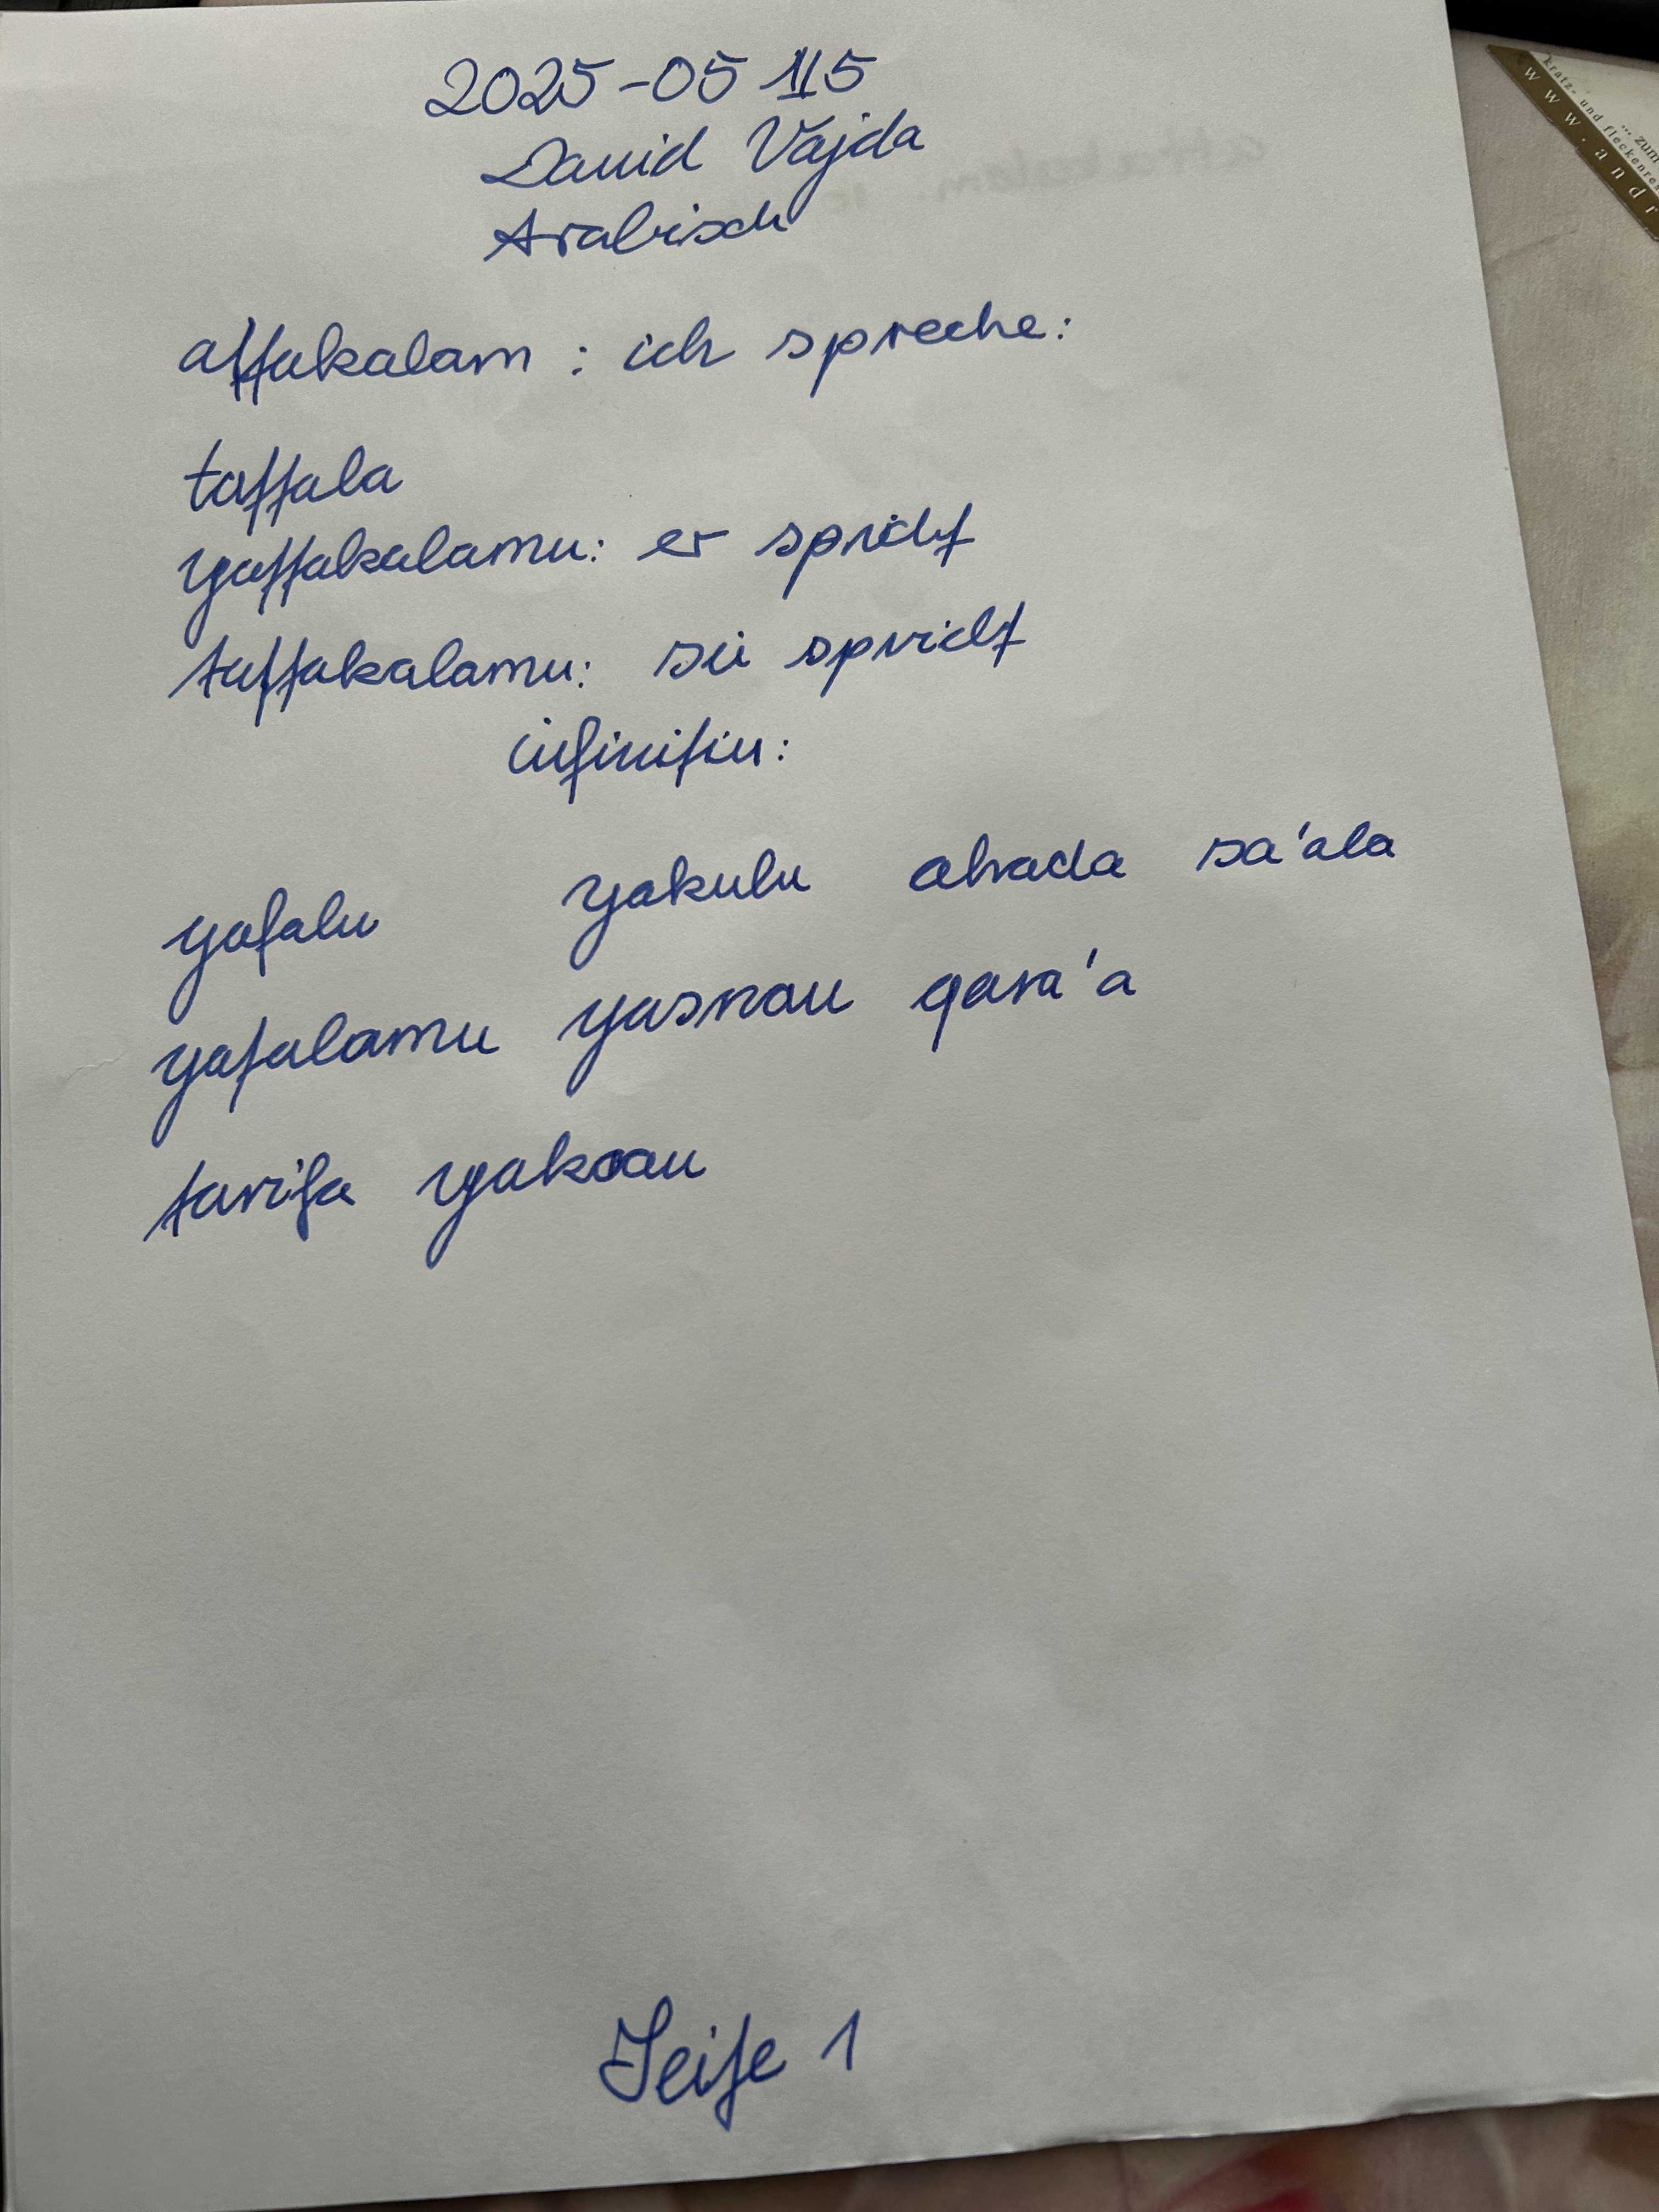 2025-05-15
David Vajda
Arabisch
attakalam : ich spreche:
tattala
yattakalamu: er spricht
tattakalamu: sie spricht
infinitiv:
yafalu yakulu ahada sa'ala
yatalamu qara'a
tarifa
Seite 1
kratz- und fleckenres
... zum
www.andr